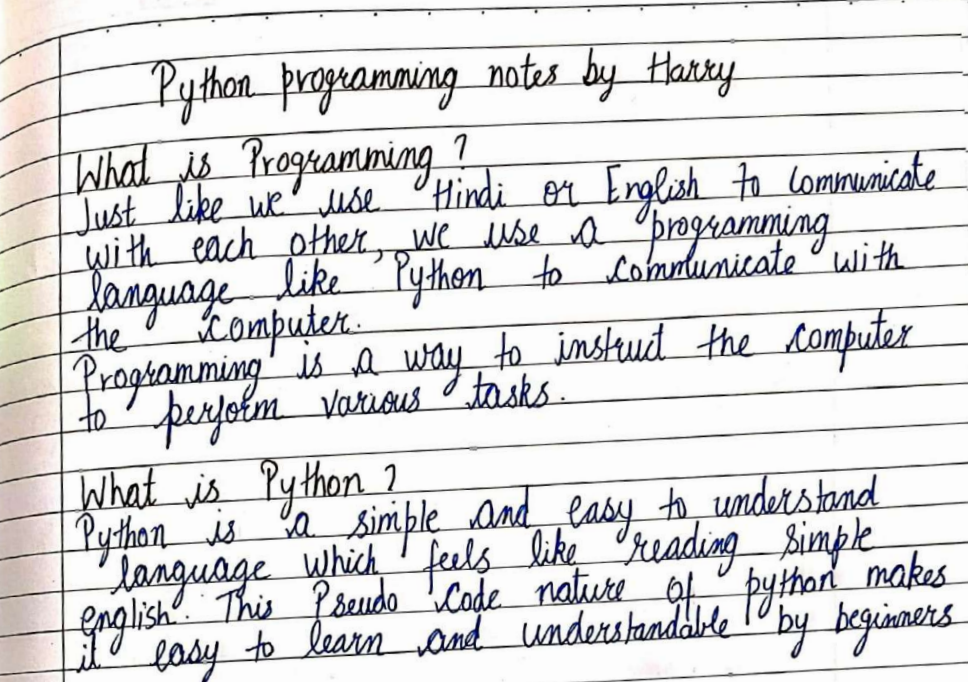 Python programming notes by Harry
What is Programming ?
Just like we use Hindi or English to communicate
with each other, we use a programming
language like Python to communicate with
the computer.
Programming is a way to instruct the computer
to perform various tasks.
What is Python ?
Python is a simple and easy to understand
language which feels like reading simple
english. This Pseudo code nature of python makes
it easy to learn and understandable by beginners